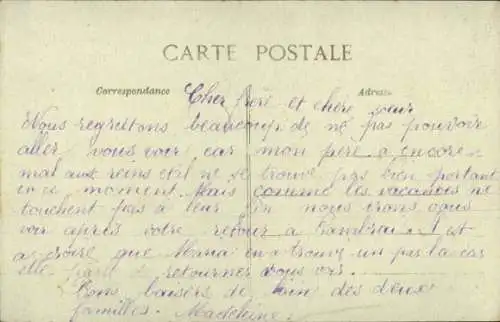 CARTE POSTALE
Correspondance Adresse
Cher frère et chère sœur
Nous regrettons beaucoup de ne pas pouvoir
aller vous voir car mon père a encore
mal aux reins et il ne se trouve pas bien portant
en ce moment. Mais comme les vacances ne
touchent pas à leur fin nous irons vous
voir après votre retour à Cambrai. Il est
a croire que Maria en a trouvé un par la car
elle parle retourner vous voir.
Bons baisers de loin des deux
familles. Madeleine.